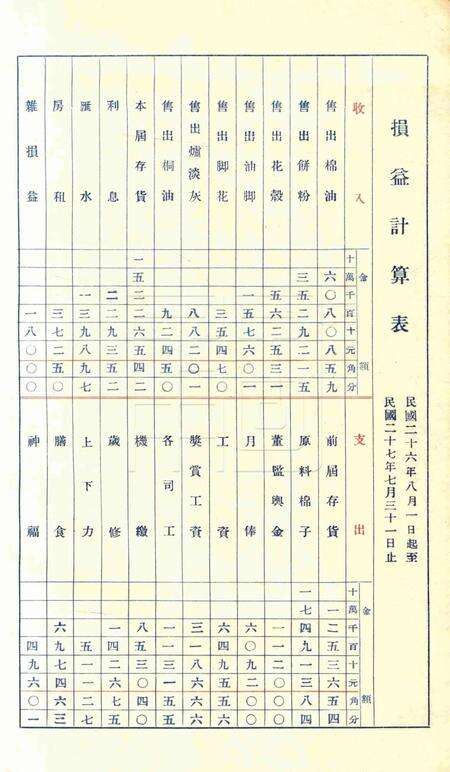 損益計算表
民國二十六年八月一日起至
民國二十七年七月三十一日止
收入 金額 十萬千百十元角分
售出棉油 六〇八〇八五九
售出餅粉 三五二九二一五
售出花殼 五六二九三一
售出油脚 一五七六〇一
售出脚花 三五四七〇
售出爐淡灰 八八二〇一
售出桐油 九二四五〇
本屆存貨 一五二二六五四二
利息 二二九三五二
匯水 一三九八九七
房租 三七二五〇
雜損益 一八〇〇〇
支出 金額 十萬千百十元角分
前屆存貨 一二五三六五四
原料棉子 一七四九一三八四
董監輿金 一〇二〇〇〇
月俸 六〇九二〇〇
工資 六四六五五六
獎賞工資 三一八九六六
各司工 一一三一五五
機繳 八五三〇四〇
歲修 一四二六七五
上下力 五一一二七
膳食 六九七四六三
神福 四九六〇一